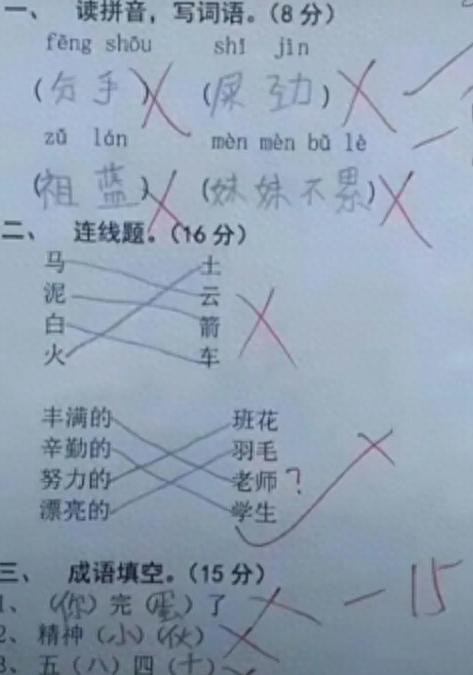 一、 读拼音，写词语。（8分）
fēng shōu shǐ jìn
（分手） （屎劲）
zǔ lán mèn mèn bū lè
（祖蓝） （妹妹不累）
二、 连线题。（16分）
马 土
泥 云
白 箭
火 车
丰满的 班花
辛勤的 羽毛
努力的 老师？
漂亮的 学生
三、 成语填空。（15分）
1、（你）完（蛋）了 －15
2、精神（小）（伙）
3、五（八）四（十）